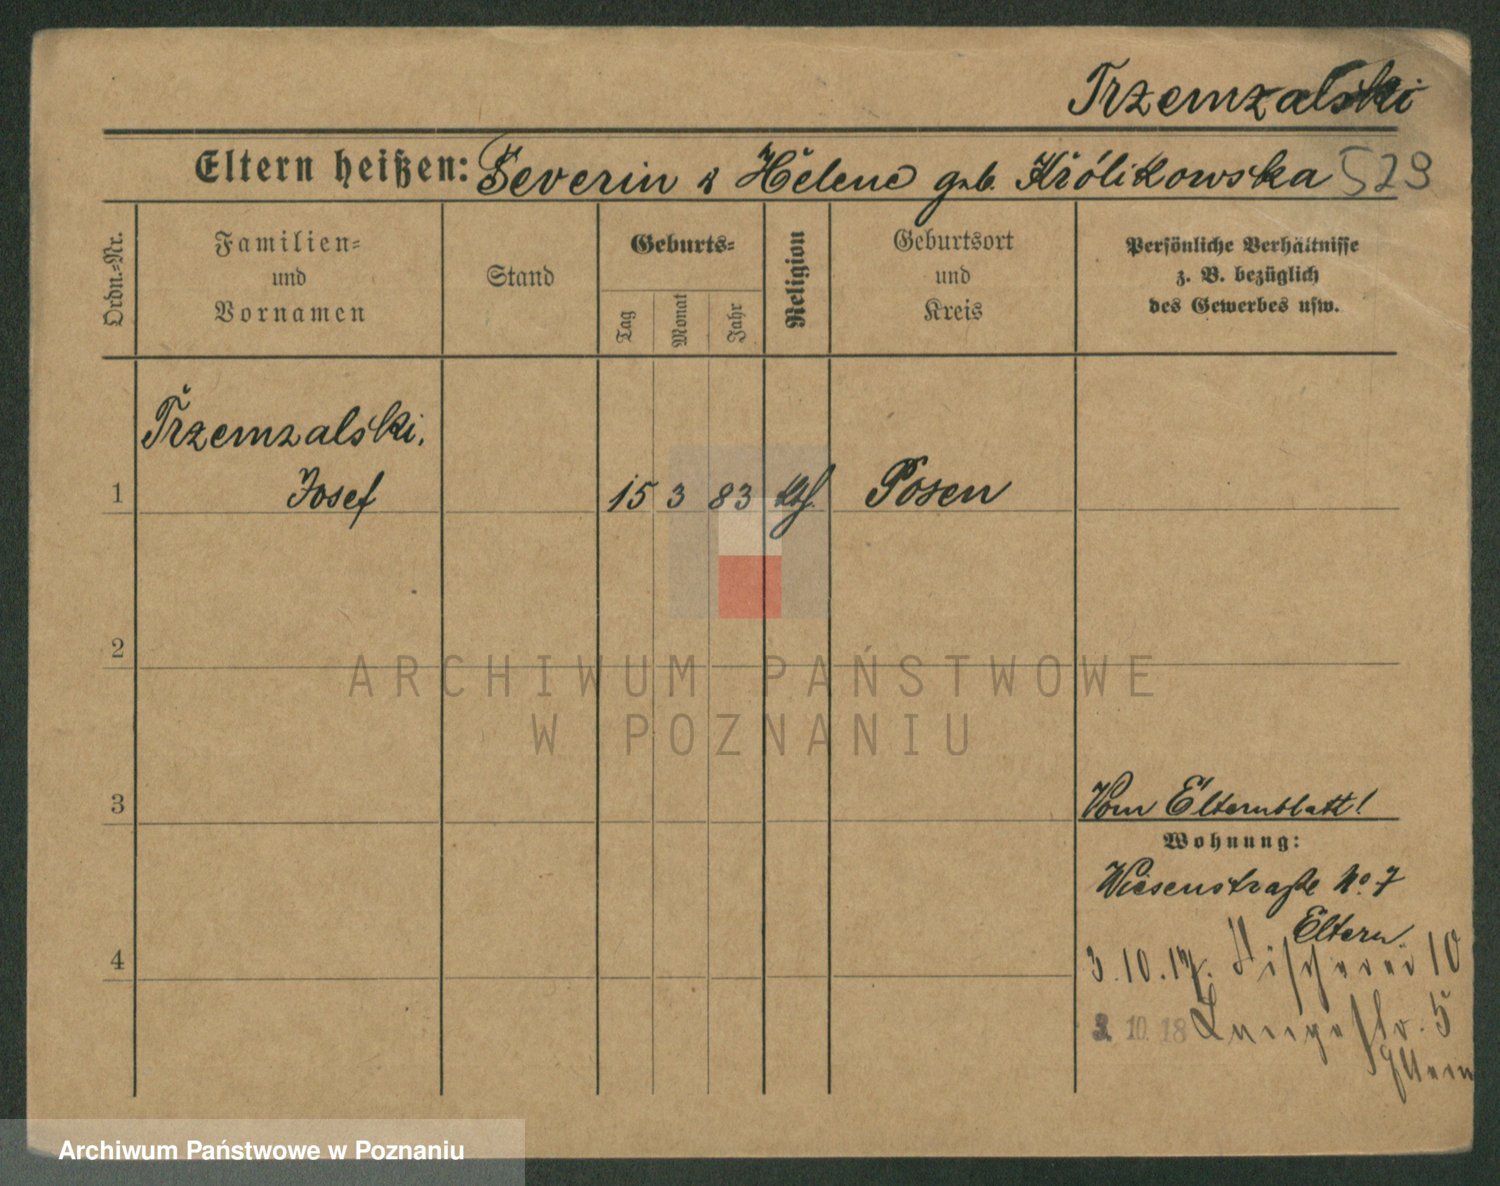 Trzemzalski
Eltern heißen: Severin & Helene geb. Królikowska 529
Ordn.-Nr.
Familien-
und
Vornamen
Stand
Geburts-
Tag
Monat
Jahr
Religion
Geburtsort
und
Kreis
Persönliche Verhältnisse
z. B. bezüglich
des Gewerbes usw.
Trzemzalski,
1 Josef 15 3 83 kth. Posen
2
ARCHIWUM PAŃSTWOWE
W POZNANIU
3
Vom Elternblatt!
Wohnung:
Wiesenstraße No. 7
Eltern
4
3.10.17. Fischerei 10
3. 10. 18 Langestr. 5
Eltern
Archiwum Państwowe w Poznaniu